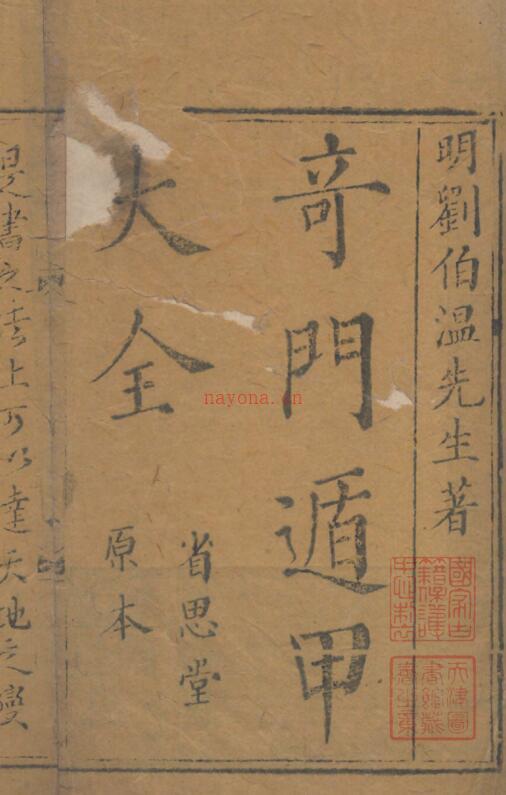 明劉伯温先生著
奇門遁甲
大全
省思堂
原本
是書之法上可以達天地之變
nayona.cn
國家古
籍保護
中心制
天津圖
書館藏